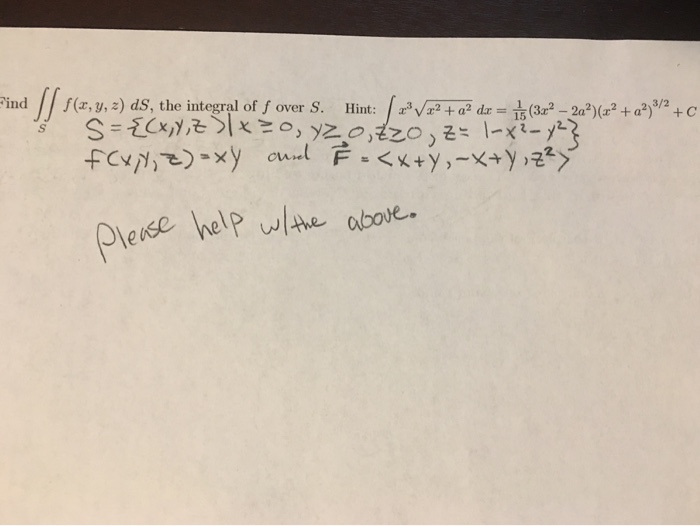 Find ∬_S f(x, y, z) dS, the integral of f over S. Hint: ∫ x³√(x² + a²) dx = 1/15 (3x² − 2a²)(x² + a²)^{3/2} + C
S = {(x,y,z>| x ≥ 0, y ≥ 0, z ≥ 0, z = 1-x²-y²}
f(x,y,z) = xy and F⃗ = <x+y, -x+y, z²>
Please help w/the above.